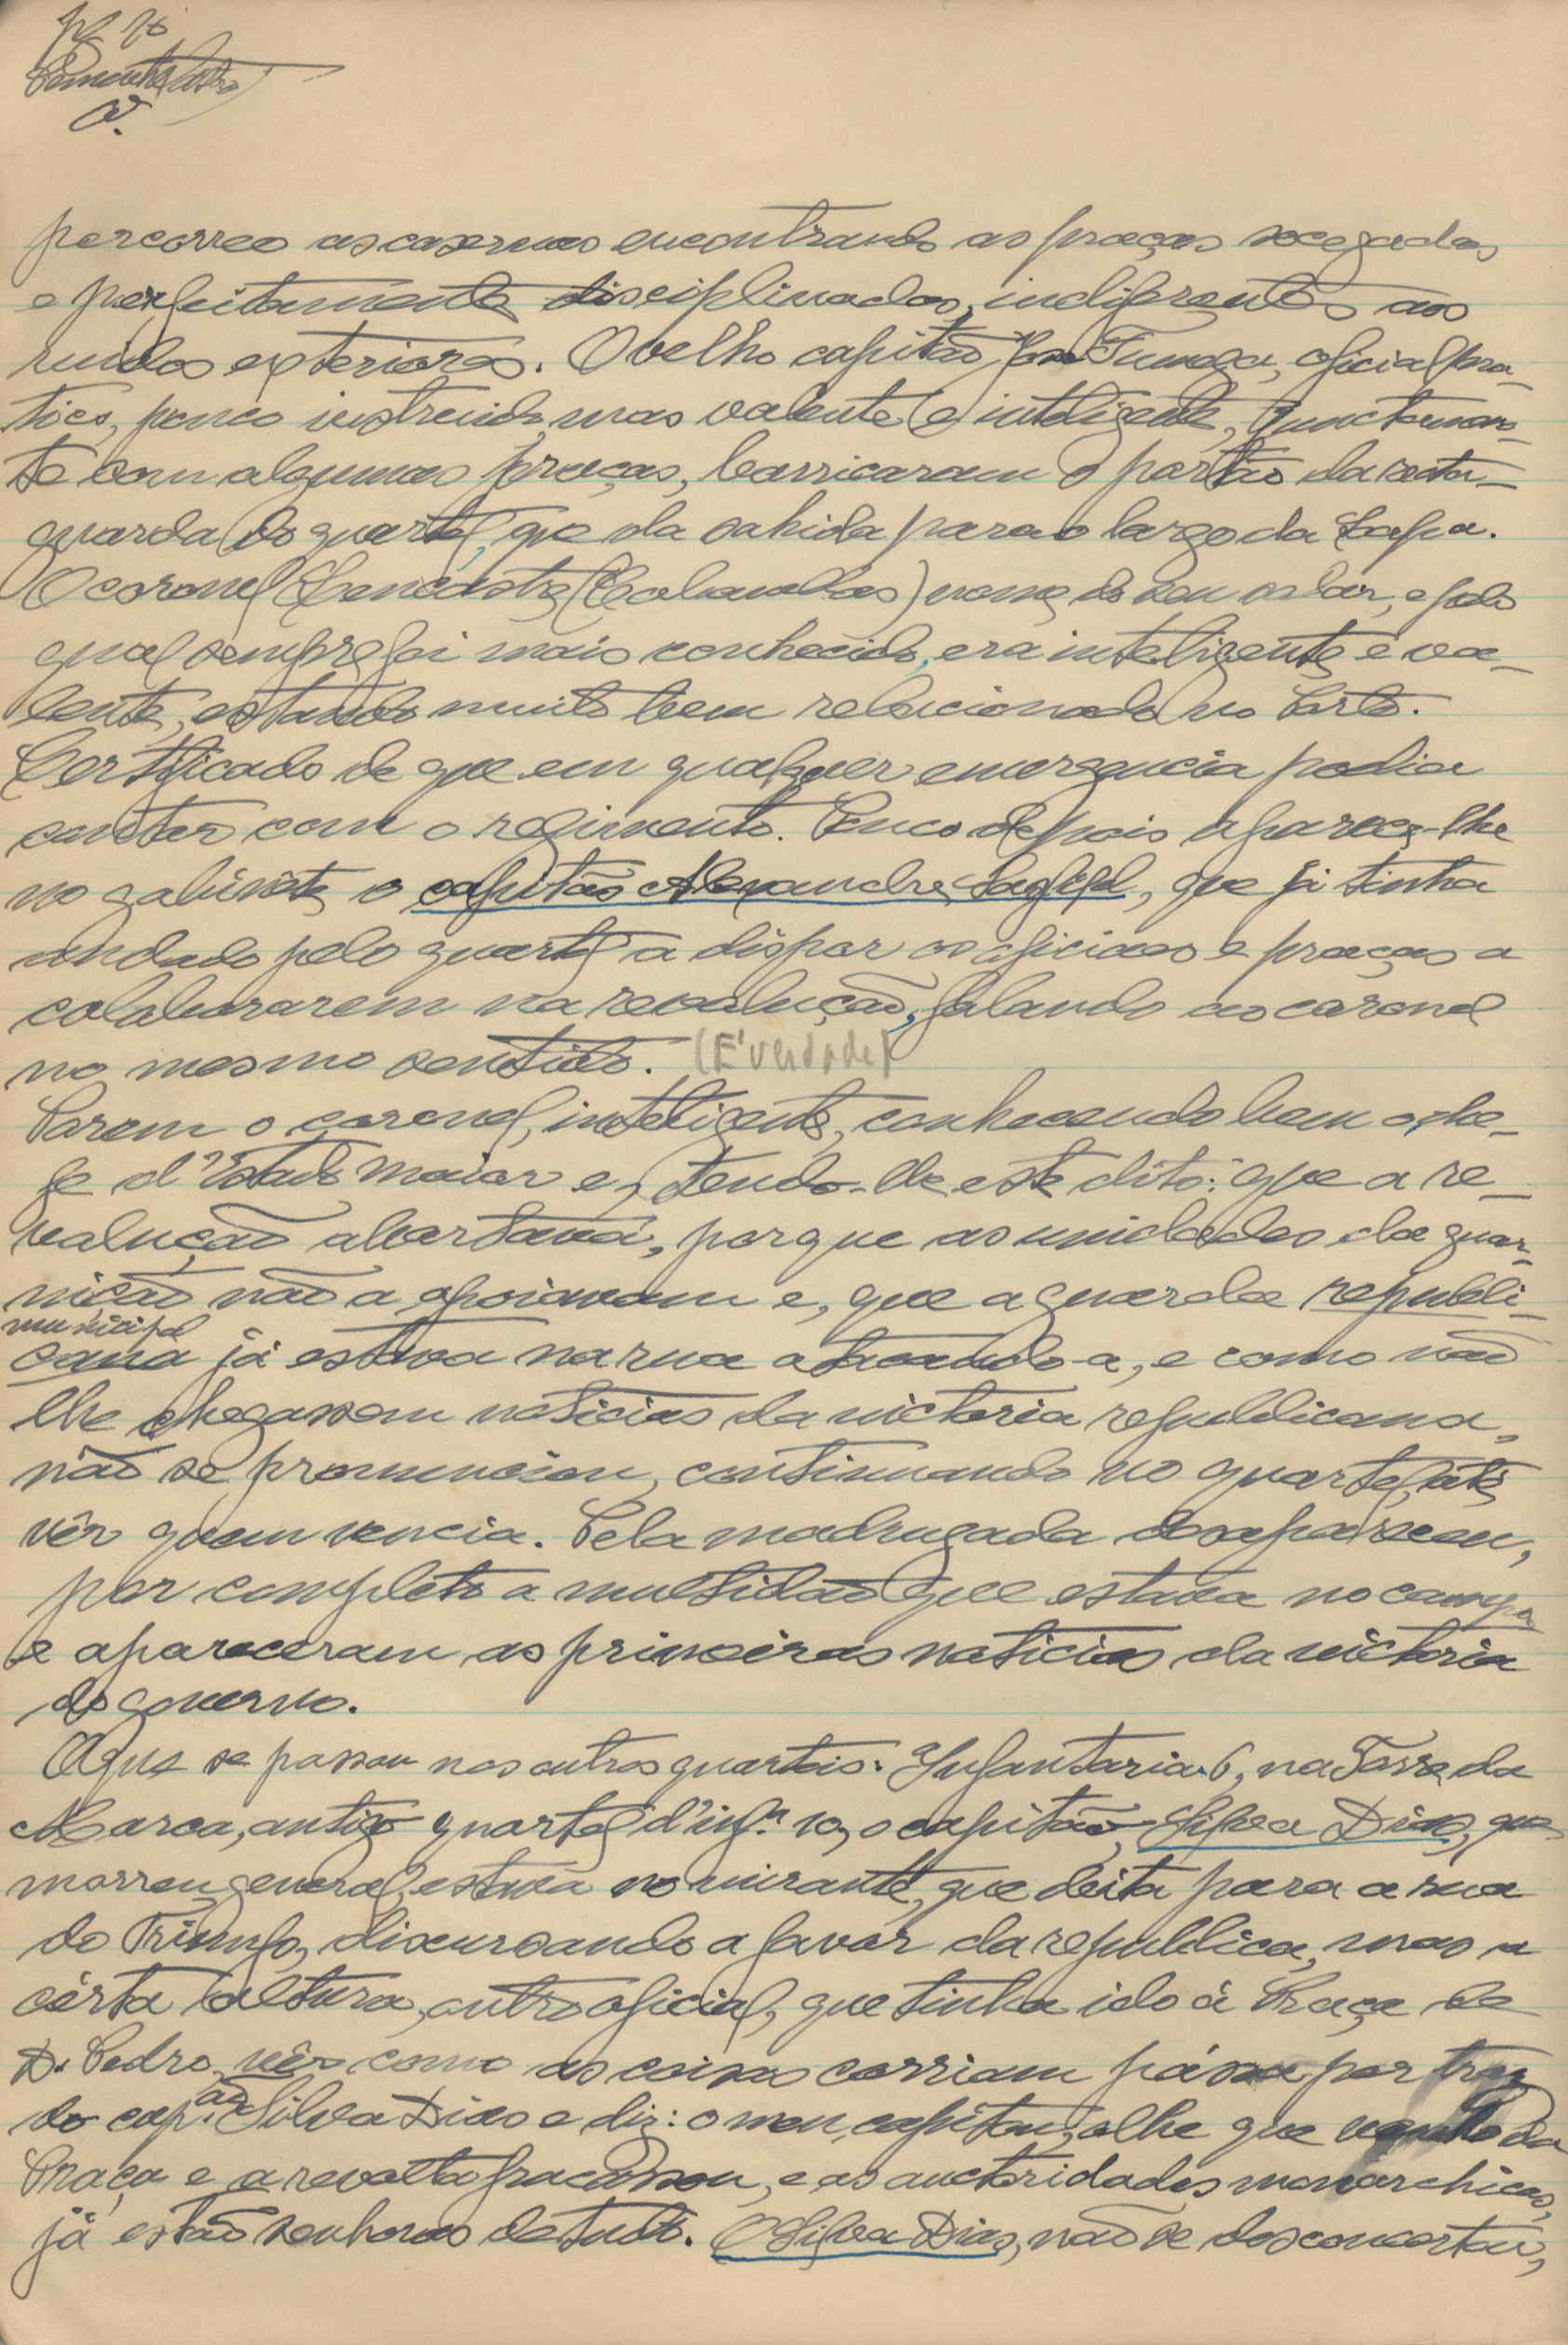 percorreo as casernas encontrando as praças socegadas
e perfeitamente disciplinadas, indiferentes aos
ruidos exteriores. O velho capitão, oficial pra-
tico, pouco instruido, mas valente e inteligente, junctamen-
te com algumas praças, barricaram o portão da recta-
guarda do quartel, que da sahida para o largo da Lapa.
O coronel Lencastre () nome do seu solar, e pelo
qual sempre foi mais conhecido, era inteligente e va-
lente, estando muito bem relacionado no Porto.
Certificado de que em qualquer emergencia podia
contar com o regimento. Pouco depois aparece-lhe
no gabinete o capitão Alexandre, que já tinha
andado pelo quartel a dispor os oficiaes e praças a
colaborarem na revolução, falando ao coronel
no mesmo sentido. (É verdade)
Porem o coronel, inteligente, conhecendo bem o che-
fe d'Estado Maior e, tendo-lhe este dito: que a re-
volução abortava, porque as unidades da guar-
nição não a apoiavam e, que a guarda republi-
municipal
cana já estava na rua atacando-a, e como não
lhe chegassem noticias da victoria republicana,
não se pronunciou, continuando no quartel, até
vêr quem vencia. Pela madrugada desapareceu,
por completo a multidão que estava no campo
e apareceram as primeiras noticias da victoria
do governo.
O que se passou nos outros quarteis: Infantaria 6, na Torre da
Marca, antigo quartel d'inf.ª 10, o capitão, Silva Dias, que
morreu general, estava no mirante, que deita para a rua
do Triunfo, discursando a favor da republica, mas a
cérta altura, outro oficial, que tinha ido á Praça de
D. Pedro, vêr como as coisas corriam pássa por traz
do cap.ão Silva Dias e diz: o meu capitão, olhe que venho da
Praça e a revolta fracassou, e as auctoridades monarchicas,
já estão senhoras de tudo. O Silva Dias, não se desconcertou,